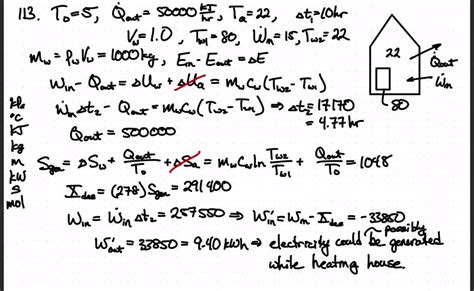 113. T₀=5, Q̇out = 50000 kJ/hr, Ta=22, Δt₁=10hr
V̶w=1.0, Tw1=80, Ẇin=15, Tw2=22
mw=ρwV̶w=1000kg, Ein-Eout=ΔE
Win-Qout=ΔUw+ΔUa=mwCw(Tw2-Tw1)
ẆinΔt2-Qout=mwCw(Tw2-Tw1) ⇒ Δt2=17170
=4.77hr
Qout=500000
Sgen=ΔSw+Qout/T₀+ΔSa=mwCw ln Tw2/Tw1+Qout/T₀=1048
Xdes=(278)Sgen=291400
Win=ẆinΔt2=257550 ⇒ W'in=Win-Xdes=-33850
W'out=33850=9.40 kWh ⇒ electricity could possibly be generated
while heating house.
22
Q̇out
Ẇin
80
kPa
°C
kJ
kg
m
kW
s
mol